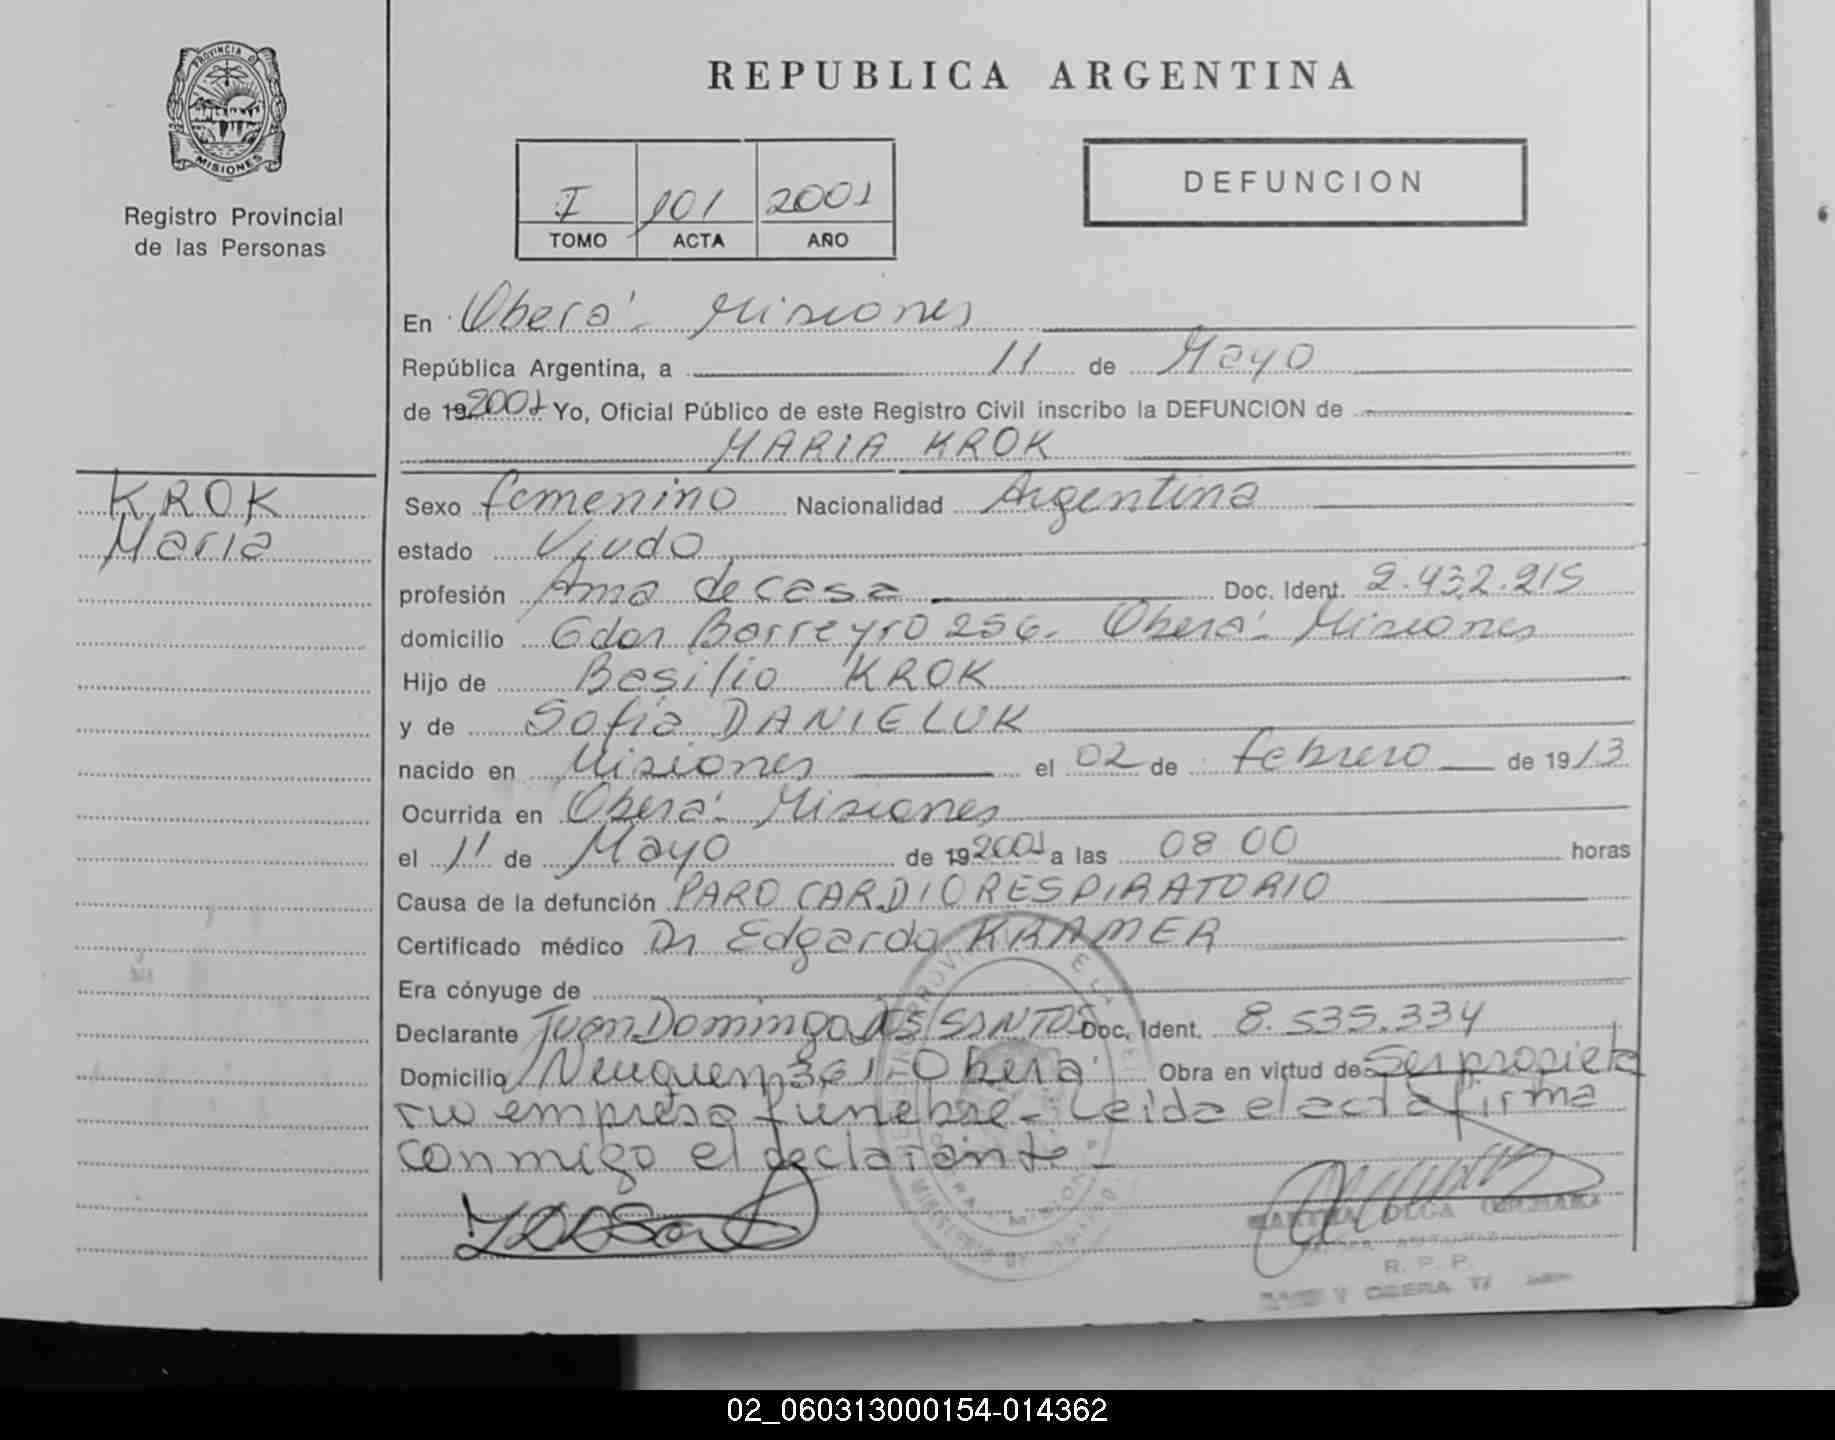 PROVINCIA DE
MISIONES
Registro Provincial
de las Personas
KROK
Maria
REPUBLICA ARGENTINA
I 101 2001
TOMO ACTA AÑO
DEFUNCION
En Oberá - Misiones
República Argentina, a 11 de Mayo
de 19 2001 Yo, Oficial Público de este Registro Civil inscribo la DEFUNCION de
MARIA KROK
Sexo femenino Nacionalidad Argentina
estado Viuda
profesión Ama de casa Doc. Ident. 2.432.215
domicilio Gdor Barreyro 256. Oberá - Misiones
Hijo de Basilio KROK
y de Sofia DANIELUK
nacido en Misiones el 02 de febrero de 1913
Ocurrida en Oberá - Misiones
el 11 de Mayo de 19 2001 a las 08 00 horas
Causa de la defunción PARO CARDIORESPIRATORIO
Certificado médico Dr Edgardo KRAMER
Era cónyuge de
Declarante Juan Domingo DOS SANTOS Doc. Ident. 8.535.334
Domicilio Neuquen 361 - Oberá Obra en virtud de Ser propieta
rio empresa fúnebre - Leida el acta firma
conmigo el declarante -
R. P. P.
02_060313000154-014362